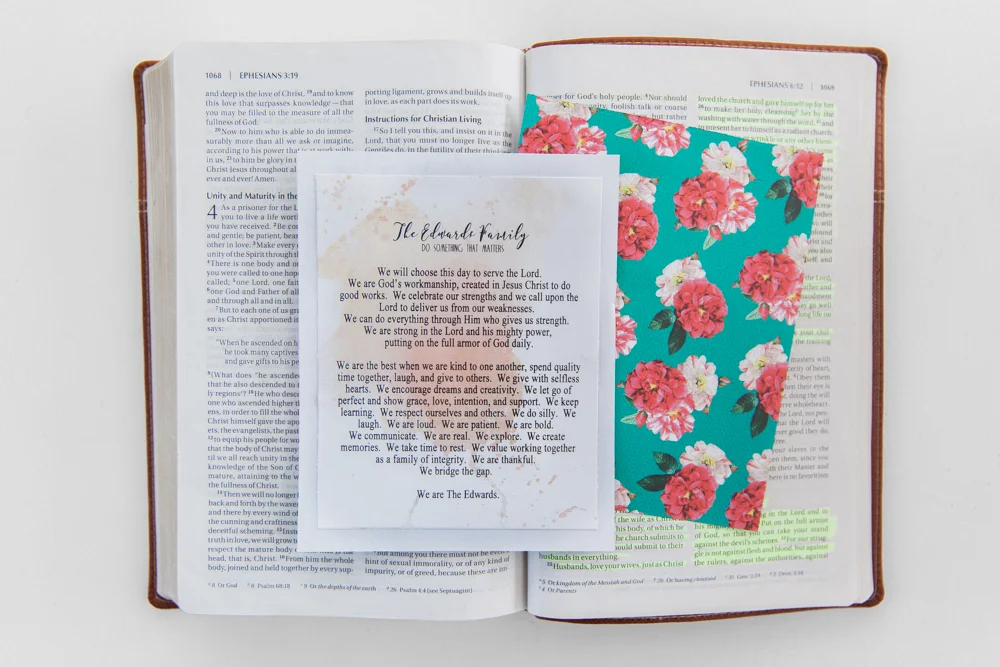 1068 | EPHESIANS 3:19
and deep is the love of Christ, 19and to know
this love that surpasses knowledge—that
you may be filled to the measure of all the
fullness of God.
20Now to him who is able to do immea-
surably more than all we ask or imagine,
according to his power that is at work with-
in us, 21to him be glory in
Christ Jesus throughout al
ever and ever! Amen.
Unity and Maturity in the
4 As a prisoner for the L
you to live a life wort
you have received. 2Be co
and gentle; be patient, bear
other in love. 3Make every
unity of the Spirit through t
4There is one body and on
you were called to one hop
called; 5one Lord, one fait
6one God and Father of al
and through all and in all.
7But to each one of us gra
en as Christ apportioned it
says:
"When he ascended on h
he took many captives
and gave gifts to his pe
9(What does "he ascended
that he also descended to t
ly regions? 10He who desce
one who ascended higher t
ens, in order to fill the whol
Christ himself gave the apo
ets, the evangelists, the past
12to equip his people for wo
that the body of Christ may
til we all reach unity in the
knowledge of the Son of G
mature, attaining to the w
the fullness of Christ.
14Then we will no longer
back and forth by the waves
and there by every wind of
the cunning and craftiness
deceitful scheming. 15Inst
truth in love, we will grow
respect the mature body o
head, that is, Christ. 16From him the whole
body, joined and held together by every sup-
porting ligament, grows and builds itself up
in love, as each part does its work.
Instructions for Christian Living
17So I tell you this, and insist on it in the
Lord, that you must no longer live as the
Gentiles do, in the futility of their thinking
The Edwards Family
DO SOMETHING THAT MATTERS
We will choose this day to serve the Lord.
We are God's workmanship, created in Jesus Christ to do
good works. We celebrate our strengths and we call upon the
Lord to deliver us from our weaknesses.
We can do everything through Him who gives us strength.
We are strong in the Lord and his mighty power,
putting on the full armor of God daily.
We are the best when we are kind to one another, spend quality
time together, laugh, and give to others. We give with selfless
hearts. We encourage dreams and creativity. We let go of
perfect and show grace, love, intention, and support. We keep
learning. We respect ourselves and others. We do silly. We
laugh. We are loud. We are patient. We are bold.
We communicate. We are real. We explore. We create
memories. We take time to rest. We value working together
as a family of integrity. We are thankful.
We bridge the gap.
We are The Edwards.
3But among you there must not be even a
hint of sexual immorality, or of any kind of
impurity, or of greed, because these are im-
a 8 Or God b 8 Psalm 68:18 c 9 Or the depths of the earth d 26 Psalm 4:4 (see Septuagint)
EPHESIANS 6:12 | 1069
for God's holy people. 4Nor should
foolish talk or coarse
but rather
the wife as Christ
his body, of which he
the church submits to
should submit to their
husbands in everything.
25Husbands, love your wives, just as Christ
loved the church and gave himself up for her
26to make her holy, cleansing her by the
washing with water through the word, 27and
to present her to himself as a radiant church,
wrinkle or any other blem-
the Lord,
masters with
sincerity of heart,
5Obey them
their eye is
doing the will
serve wholeheart-
the Lord, not peo-
your slaves in the
them, since you
their Master and
there is no favoritism
in the Lord and in
his mighty Put on the full armor
of God, so that you can take your stand
against the devil's schemes. 12For our strug-
gle is not against flesh and blood, but against
the rulers, against the authorities, against
a 5 Or kingdom of the Messiah and God
Or Parents